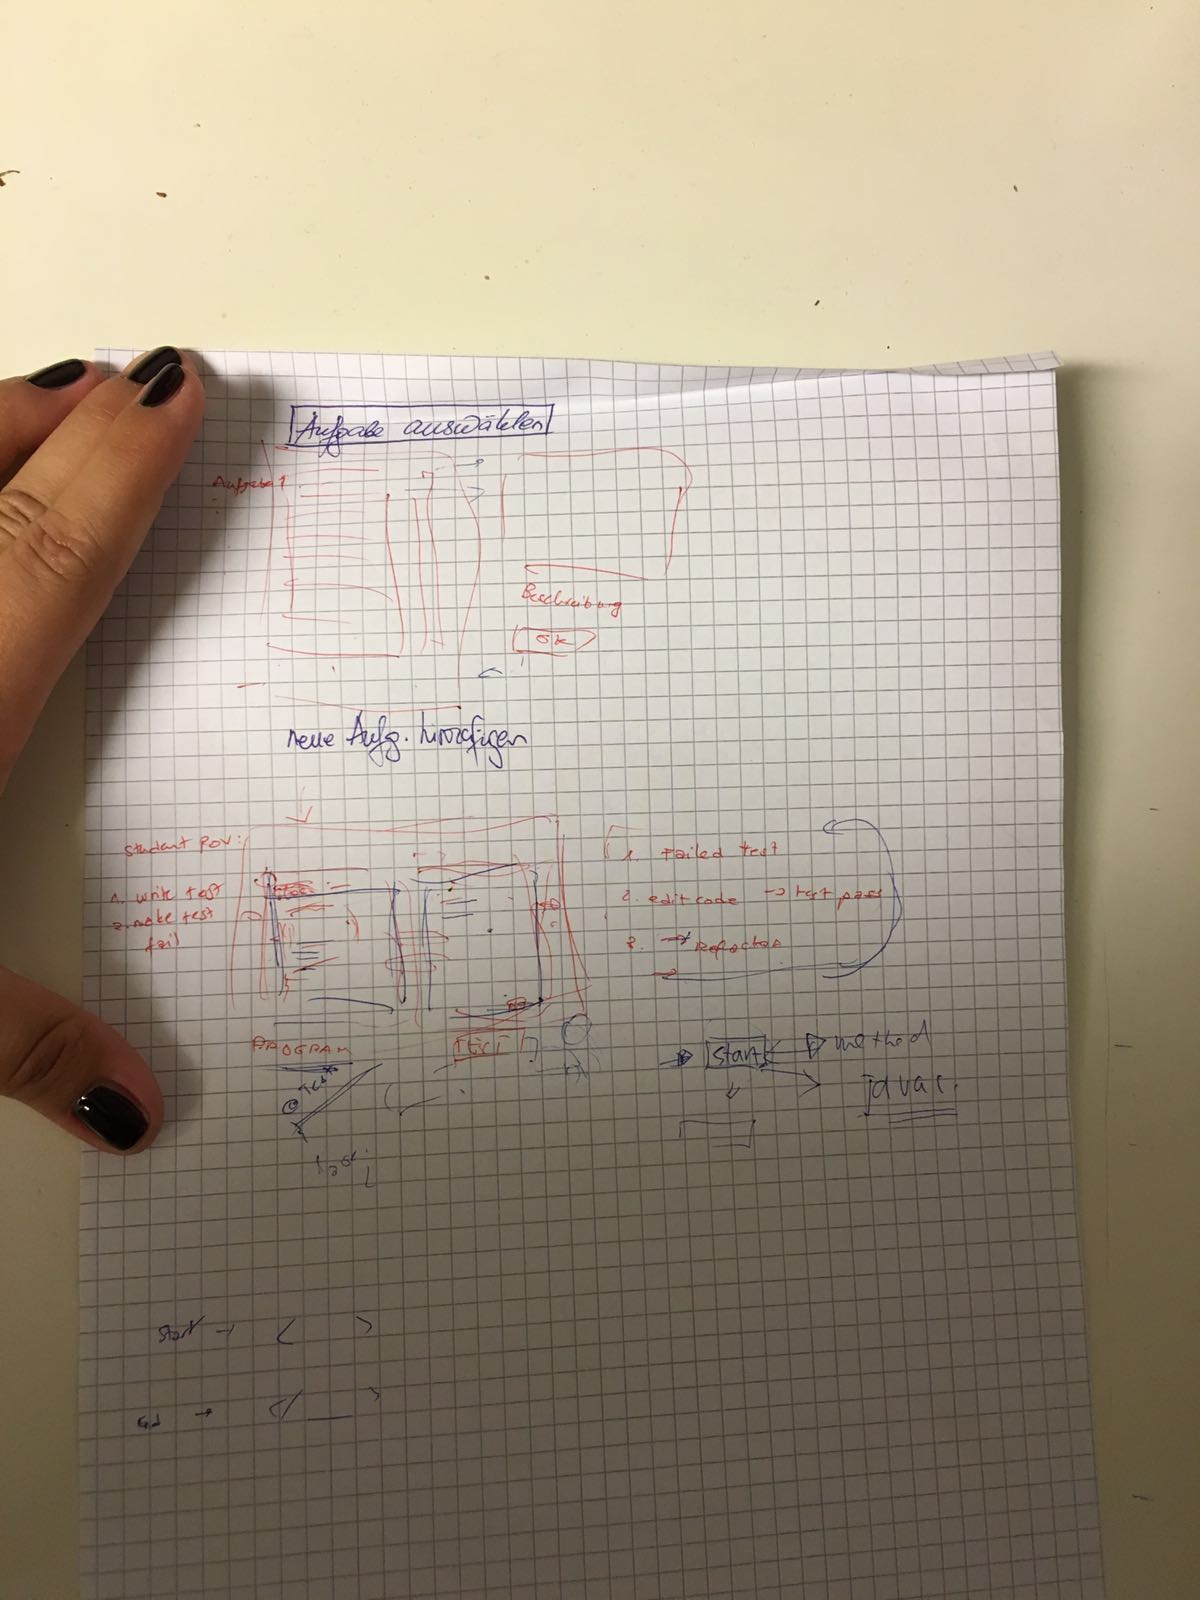 Aufgabe auswählen
Aufgabe 1
Beschreibung
OK
neue Aufg. hinzufügen
Student POV:
1. write test
2. make test
fail
1. Failed test
2. edit code → test pass
3. → Refactor
PROGRAM
TEST
Test
→ start
method
Javac.
Start →